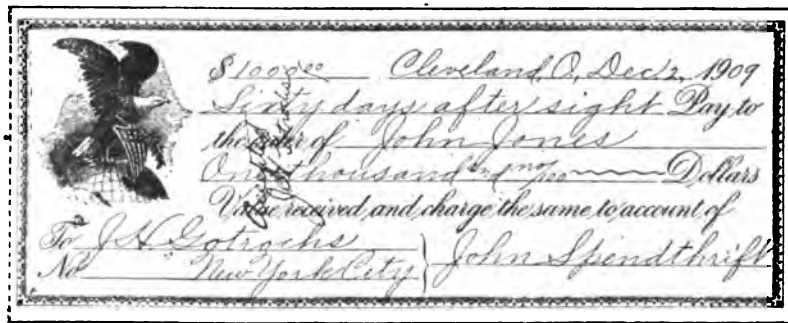 $1000 00 Cleveland, O., Dec 2, 1909
Sixty days after sight Pay to
the order of John Jones
One thousand and no/100 Dollars
Value received and charge the same to account of
To J. H. Gotrochs
No New York City
John Spendthrift